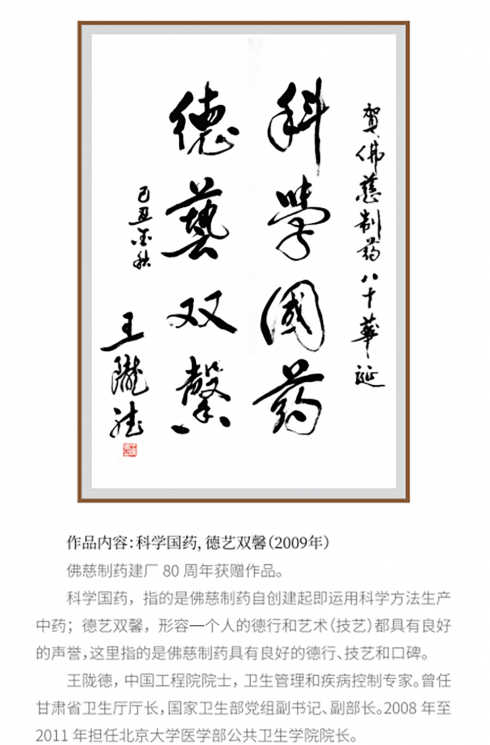 贺佛慈制药八十华诞
科学國药
德藝双馨
己丑金秋
王陇德
作品内容：科学国药, 德艺双馨（2009年）
佛慈制药建厂 80 周年获赠作品。
科学国药，指的是佛慈制药自创建起即运用科学方法生产
中药；德艺双馨，形容一个人的德行和艺术（技艺）都具有良好
的声誉，这里指的是佛慈制药具有良好的德行、技艺和口碑。
王陇德，中国工程院院士，卫生管理和疾病控制专家。曾任
甘肃省卫生厅厅长，国家卫生部党组副书记、副部长。2008 年至
2011 年担任北京大学医学部公共卫生学院院长。